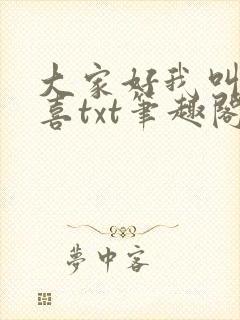 大家好我叫
喜txt筆趣閣
夢中客